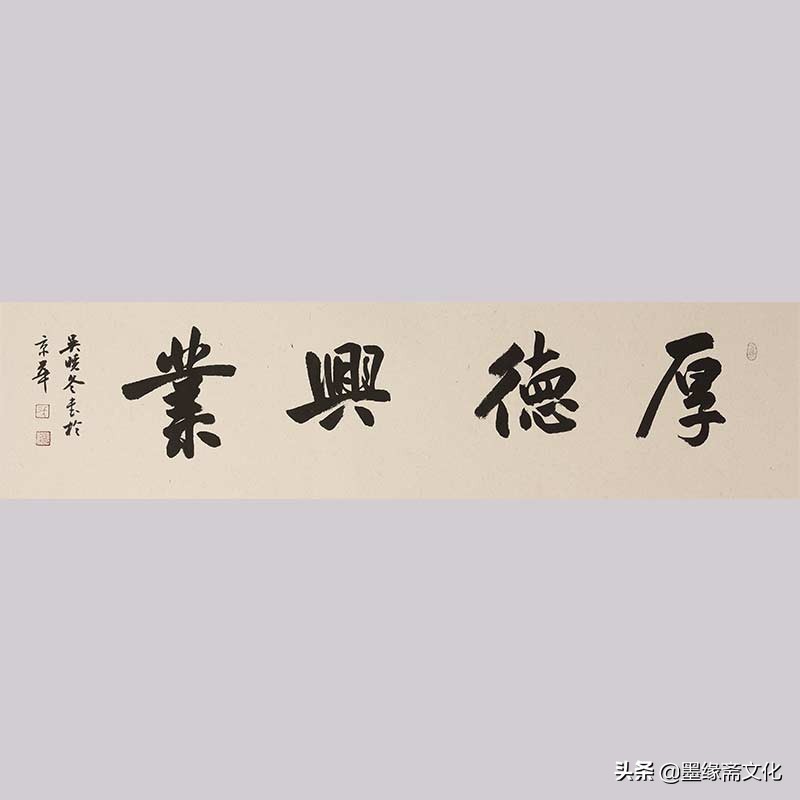 厚德興業
吳曉冬書於
京華
头条 @墨缘斋文化